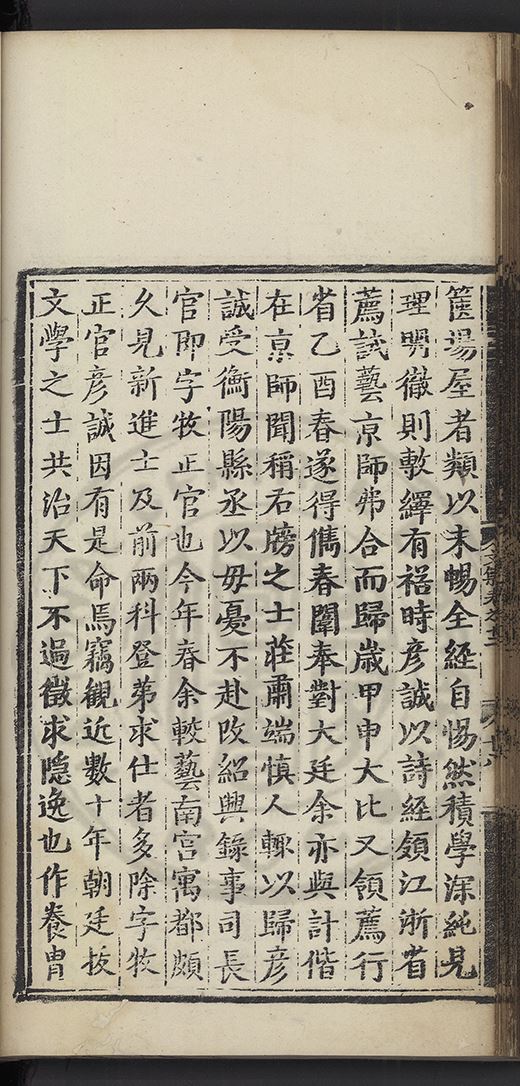 篋場屋者類以未暢全經自惕然積學深純見
理明徹則敷繹有裕時彦誠以詩經領江浙省
薦試藝京師弗合而歸歲甲申大比又領薦行
省乙酉春遂得儁春闈奉對大廷余亦與計偕
在京師聞稱右牓之士莊肅端慎人輒以歸彦
誠受衡陽縣丞以毋憂不赴改紹興錄事司長
官即字牧正官也今年春余較藝南宫寓都頗
久見新進士及前兩科登第求仕者多除字牧
正官彦誠因有是命焉竊觀近數十年朝廷拔
文學之士共治天下不過徵求隱逸也作養胄